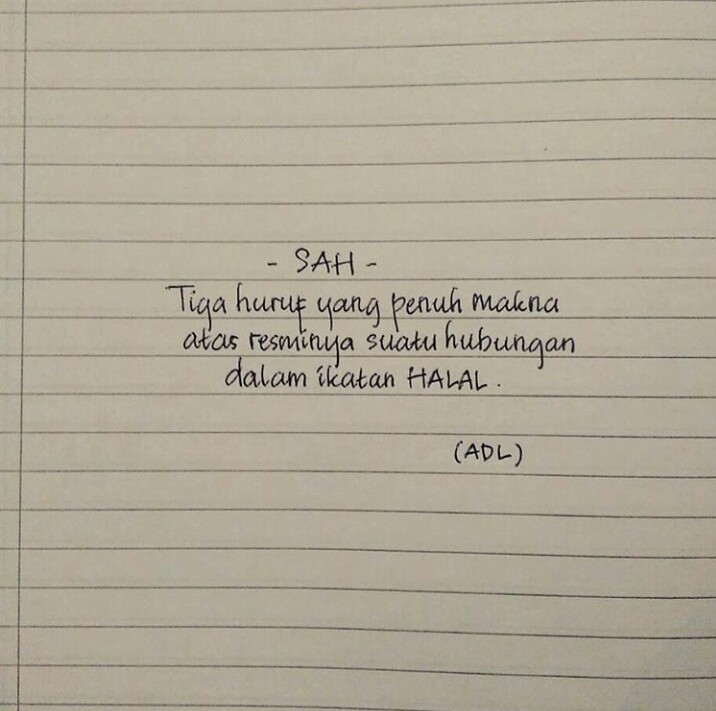 - SAH -
Tiga huruf yang penuh makna
atas resminya suatu hubungan
dalam ikatan HALAL.
(ADL)